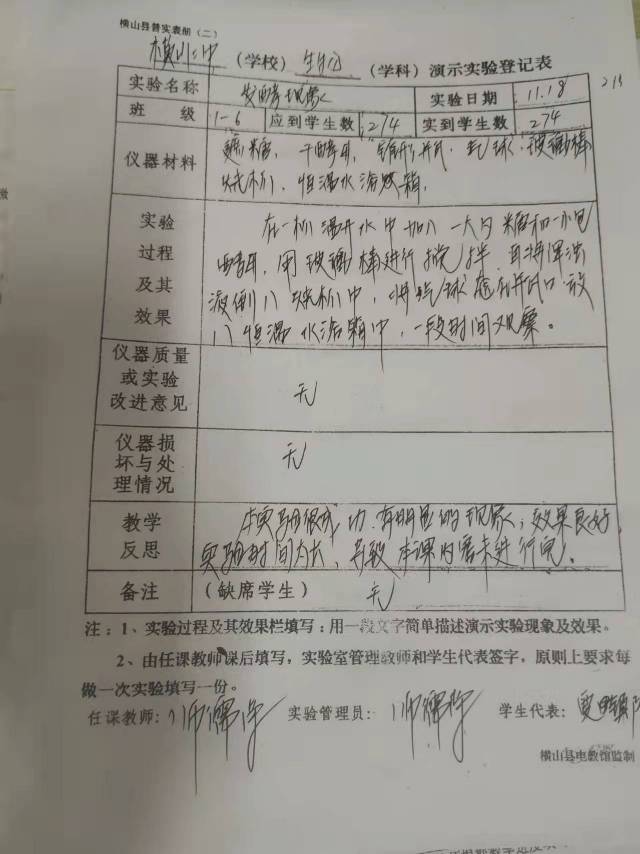 横山县普实表册（二）
横山二中（学校）生物（学科）演示实验登记表
实验名称 发酵现象 实验日期 11.18
班 级 1-6 应到学生数 274 实到学生数 274
仪器材料 蔗糖、干酵母、锥形瓶、气球、玻璃棒
烧杯、恒温水浴箱。
实验
过程
及其
效果
在一杯温开水中加入一大勺糖和一小包
酵母，用玻璃棒进行搅拌，再将浑浊
液倒入烧杯中，将气球套在瓶口放
入恒温水浴箱中，一段时间观察。
仪器质量
或实验
改进意见
无
仪器损
坏与处
理情况
无
教学
反思
本实验很成功，有明显的现象，效果良好，
实验时间太长，导致本课内容未进行完。
备注 （缺席学生） 无
注：1、实验过程及其效果栏填写：用一段文字简单描述演示实验现象及效果。
2、由任课教师课后填写，实验室管理教师和学生代表签字，原则上要求每
做一次实验填写一份。
任课教师： 实验管理员： 学生代表：
横山县电教馆监制